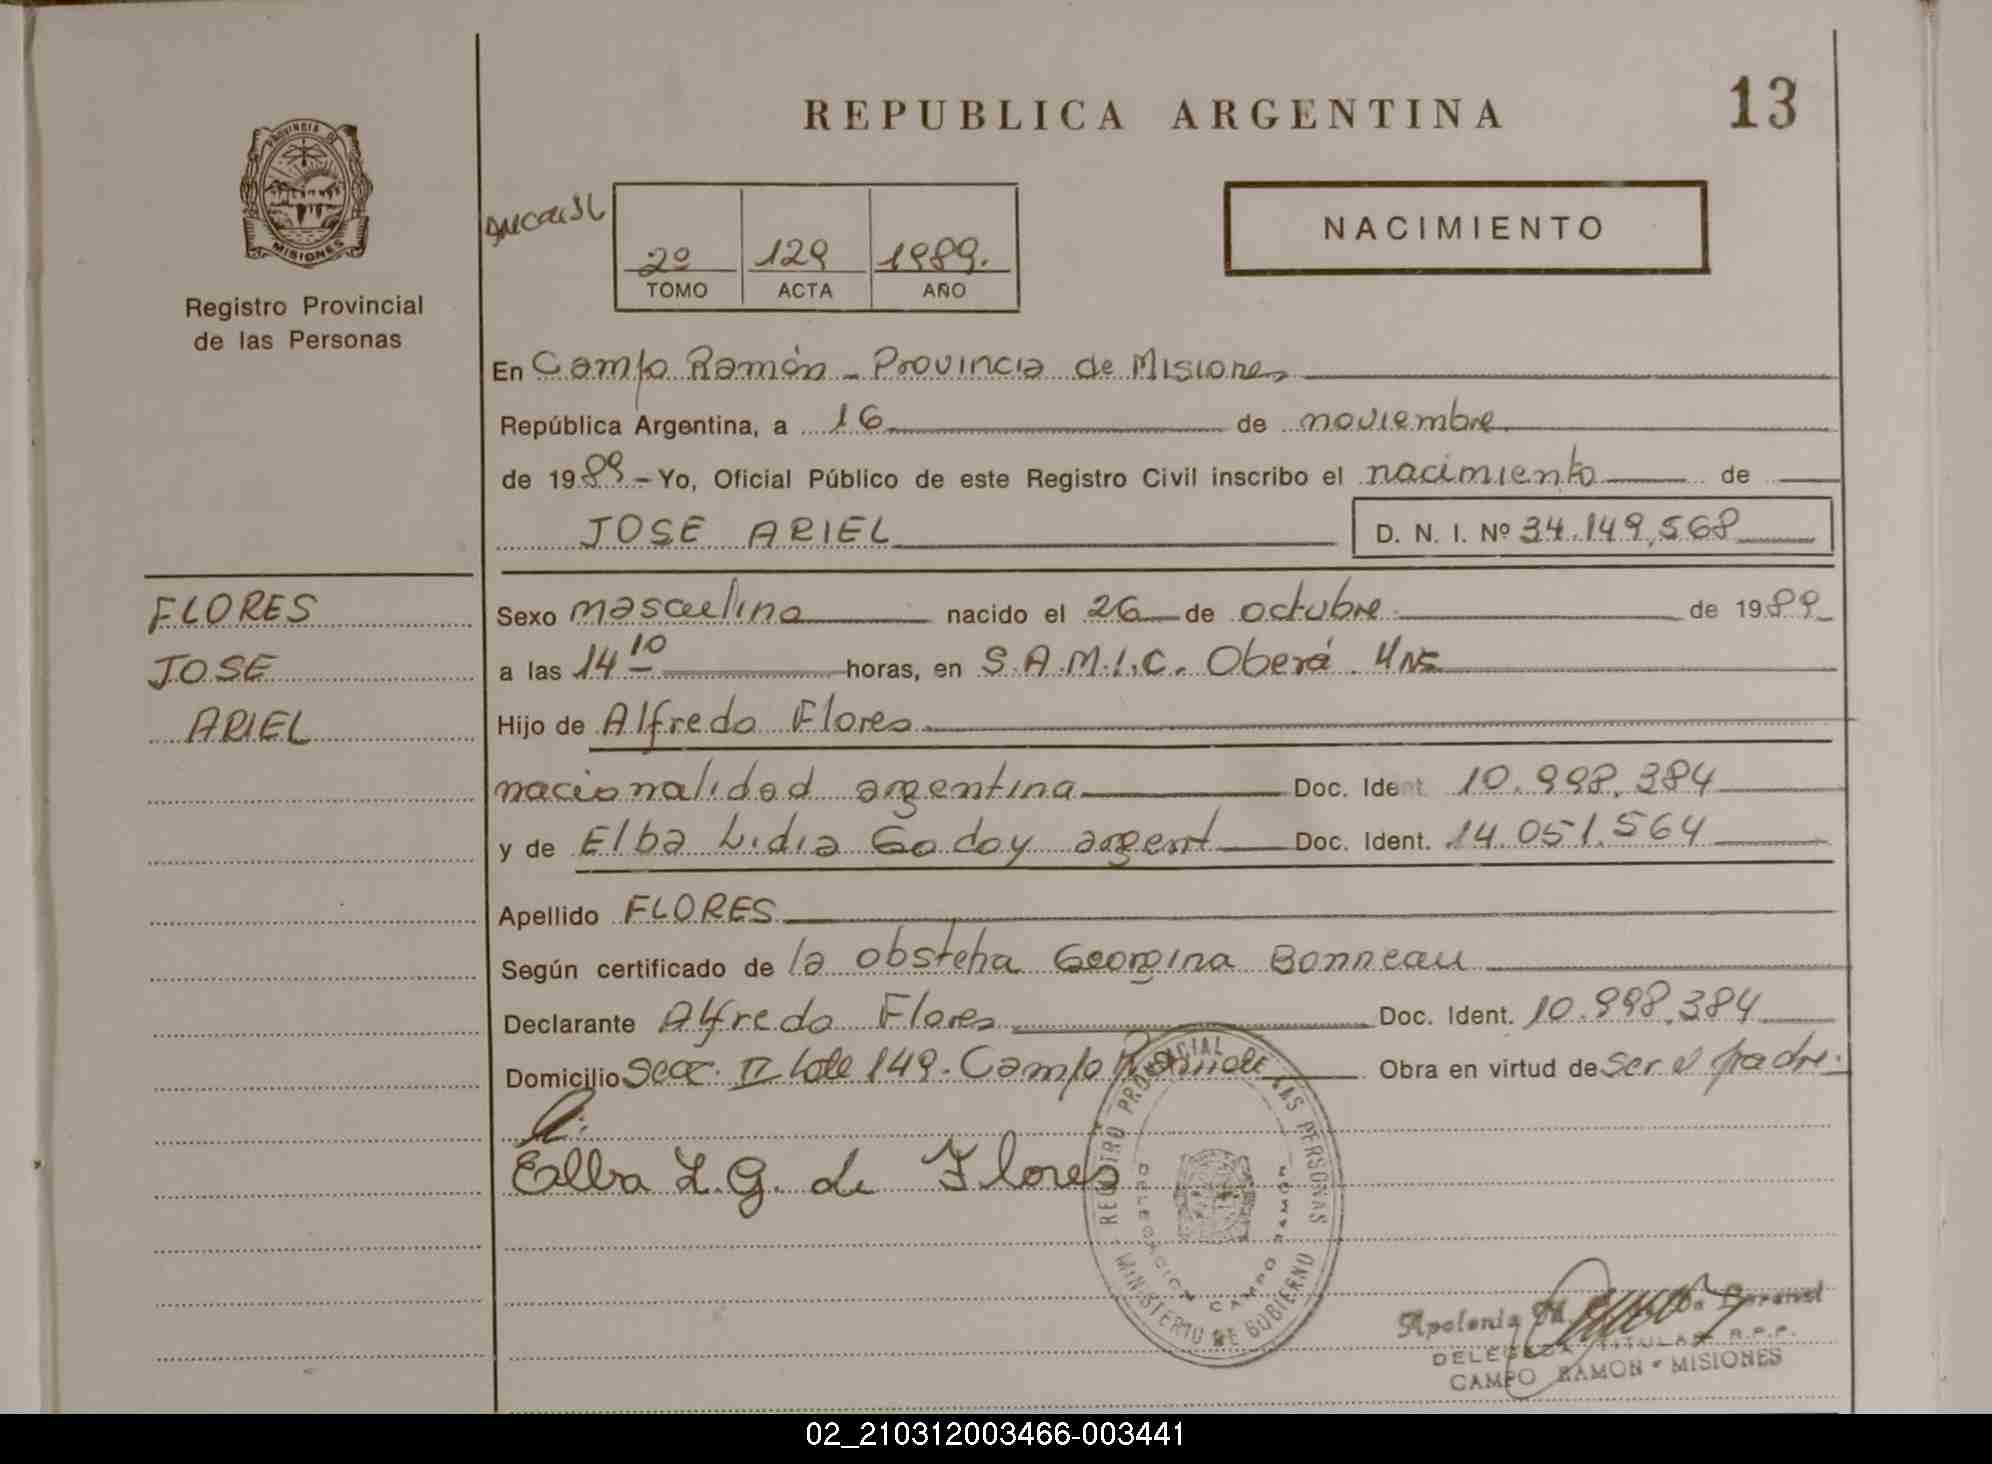 REPUBLICA ARGENTINA
13
PROVINCIA DE
MISIONES
Registro Provincial
de las Personas
2º 129 1989.
TOMO ACTA AÑO
NACIMIENTO
En Campo Ramón - Provincia de Misiones
República Argentina, a 16 de noviembre
de 1989 - Yo, Oficial Público de este Registro Civil inscribo el nacimiento de
JOSE ARIEL D. N. I. Nº 34.149,568
FLORES
JOSE
ARIEL
Sexo masculino nacido el 26 de octubre de 1989
a las 14 10 horas, en S.A.M.I.C. Oberá Mns
Hijo de Alfredo Flores
nacionalidad argentina Doc. Ident. 10.998.384
y de Elba Lidia Godoy argent Doc. Ident. 14.051.564
Apellido FLORES
Según certificado de la obstetra Georgina Bonneau
Declarante Alfredo Flores Doc. Ident. 10.998.384
Domicilio Secc. II Lote 149. Campo Obra en virtud de ser el padre.
Elba L. G. de Flores
REGISTRO PROVINCIAL DE LAS PERSONAS
DELEGACION CAMPO RAMON
MINISTERIO DE GOBIERNO
Apolonia
DELEGADA TITULAR R.P.P.
CAMPO RAMON - MISIONES
02_210312003466-003441